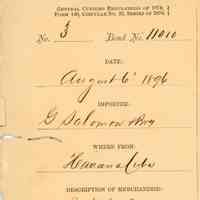 GENERAL CUSTOMS REGULATIONS OF 1874,
FORM 140, CIRCULAR NO. 52, SERIES OF 1876.
No. 3 Bond No. 11010
DATE:
August 6' 1896
IMPORTER:
G Solomon & Bro
WHERE FROM:
Havana Cuba
DESCRIPTION OF MERCHANDISE: